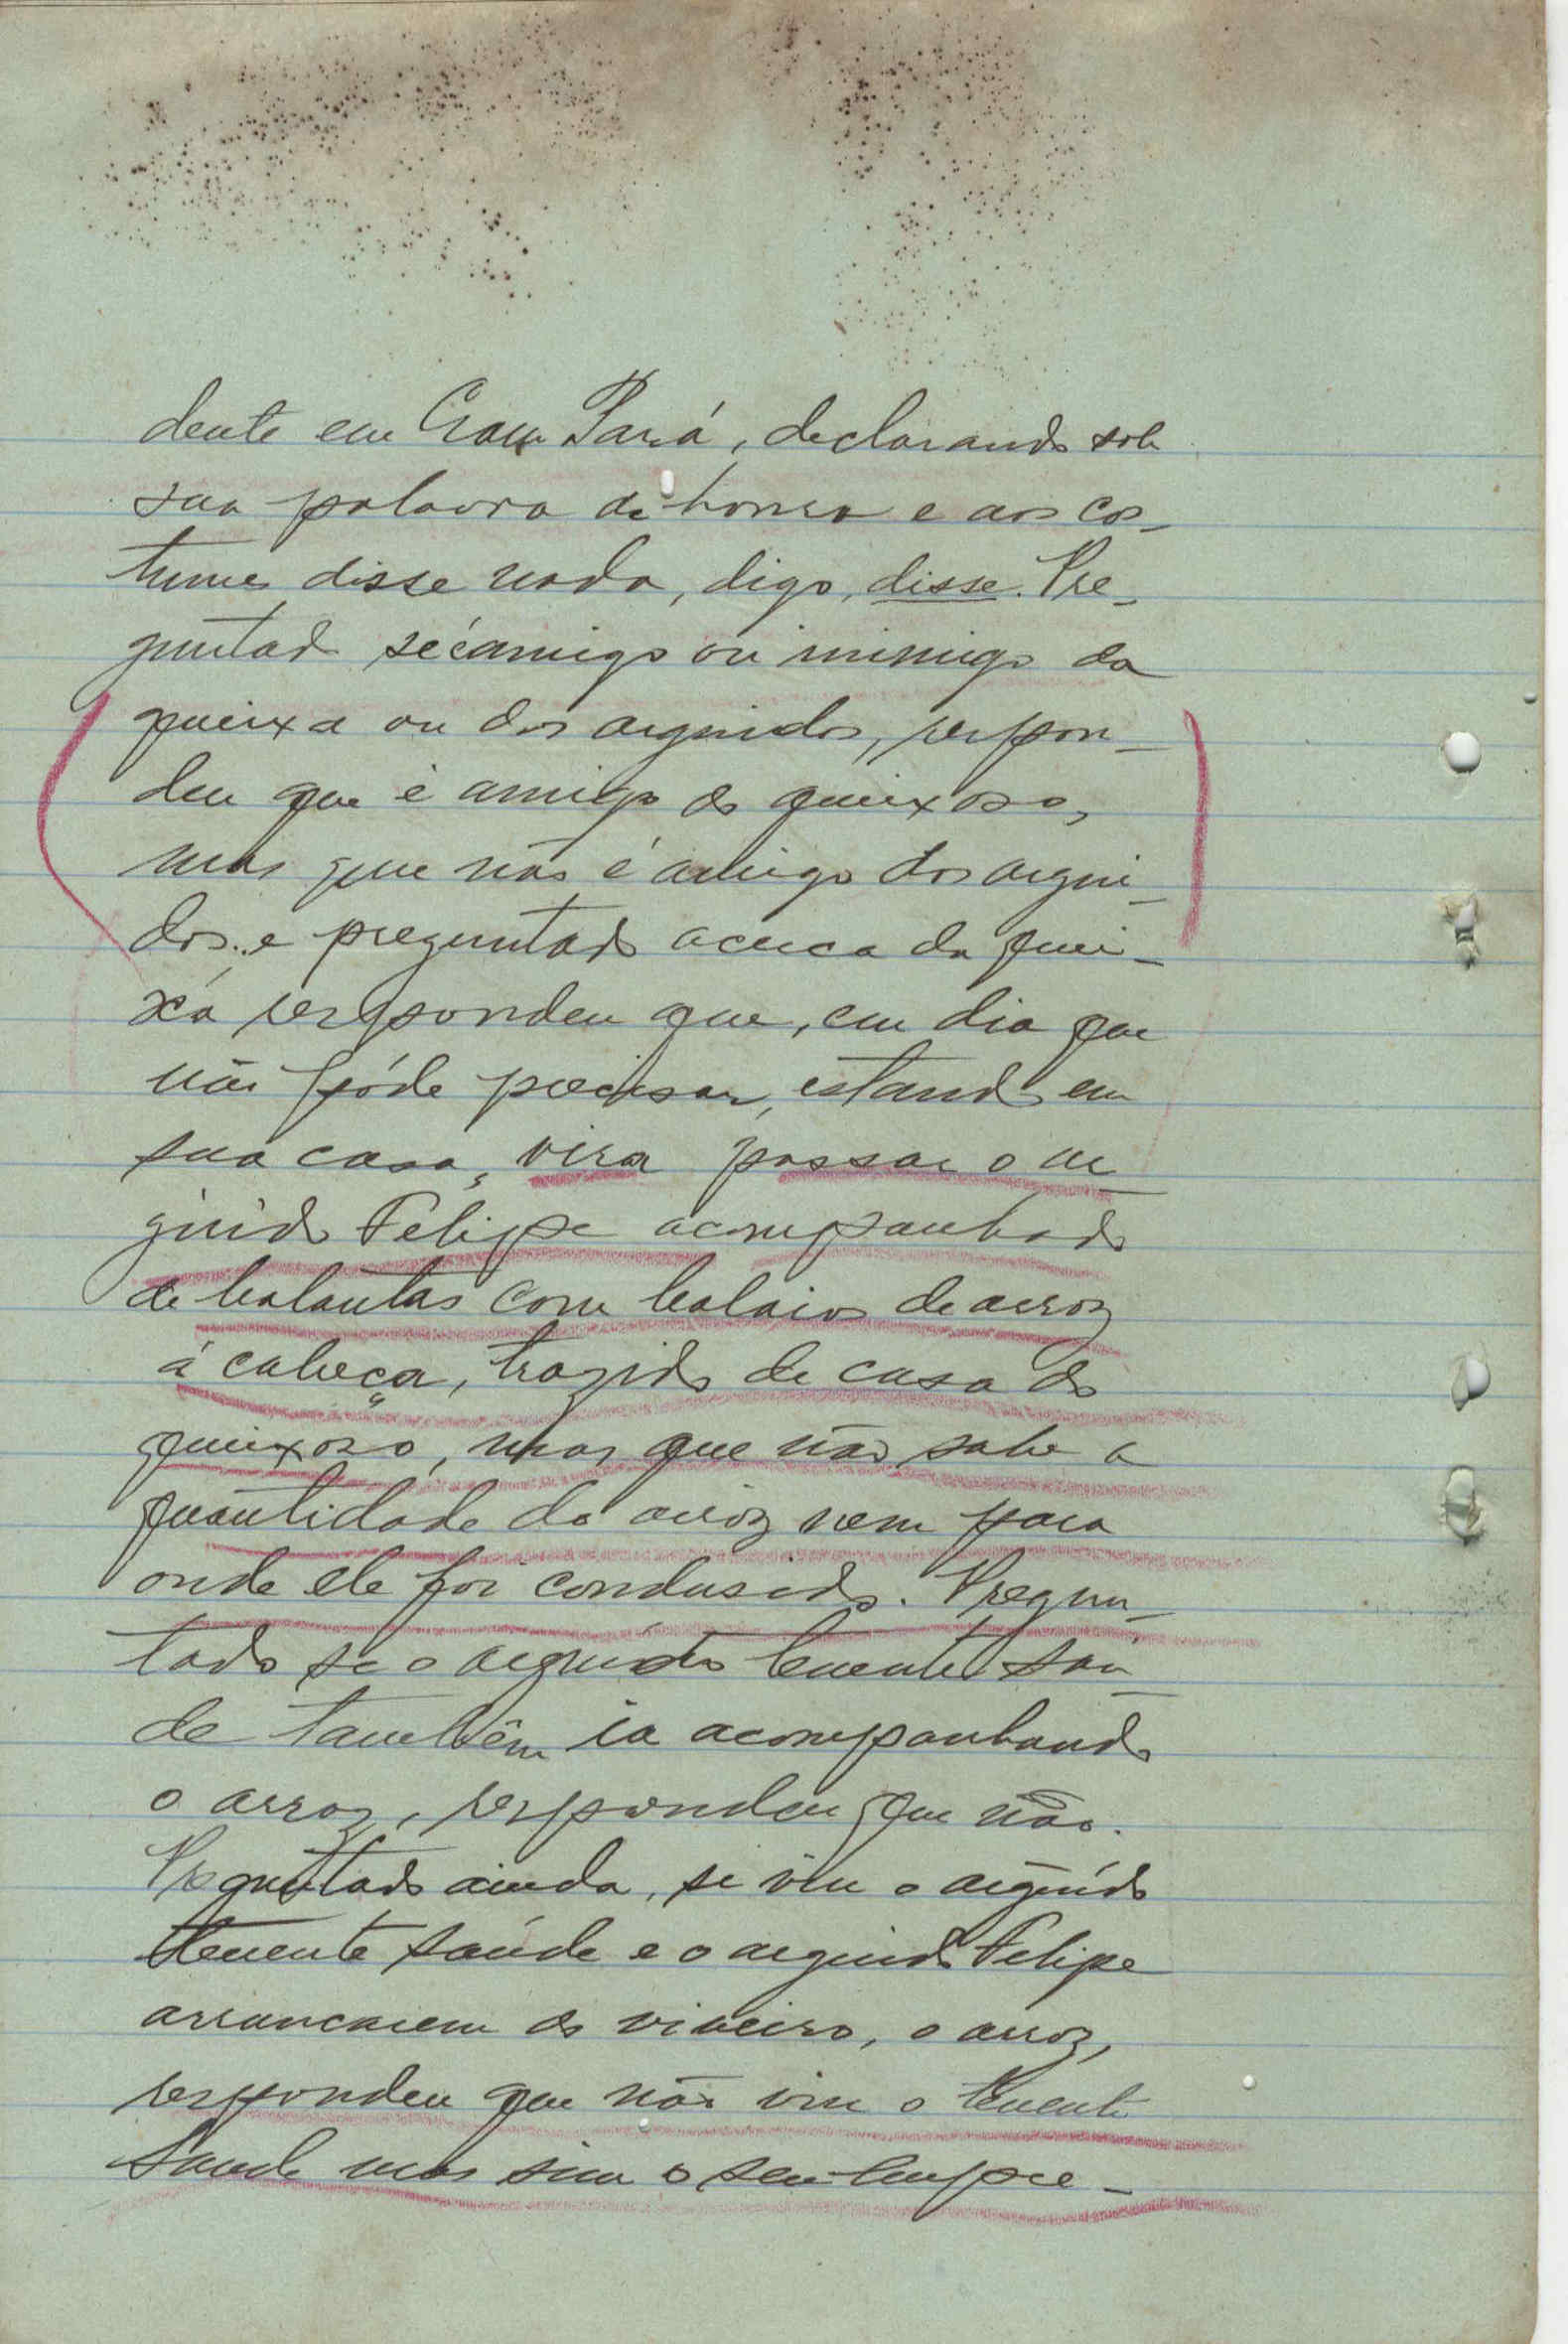 dente em Gam Pará, declarando sob
sua palavra de honra e aos cos-
tumes disse nada, digo, disse. Pre-
guntado se é amigo ou inimigo da
queixa ou dos arguidos, respon-
deu que é amigo do queixoso,
mas que não é amigo dos argui-
dos. e preguntado acerca da quei-
xa respondeu que, em dia que
não póde precisar, estando em
sua casa, vira passar o ar-
guido Felipe acompanhado
de balantas com balaios de arroz
á cabeça, trazido de casa do
queixoso, mas que não sabe a
quantidade do arroz nem para
onde ele foi condusido. Pregun-
tado se o arguido tenente Saú-
de tambêm ia acompanhando
o arroz, respondeu que não.
Preguntado ainda, se viu o arguido
tenente Saúde e o arguido Felipe
arrancarem do viveiro, o arroz,
respondeu que não viu o tenente
Saude mas sim o seu empre-